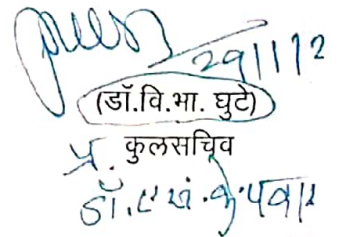 29/11/2
(डॉ.वि.भा. घुटे)
प्र. कुलसचिव
डॉ. के. पवार